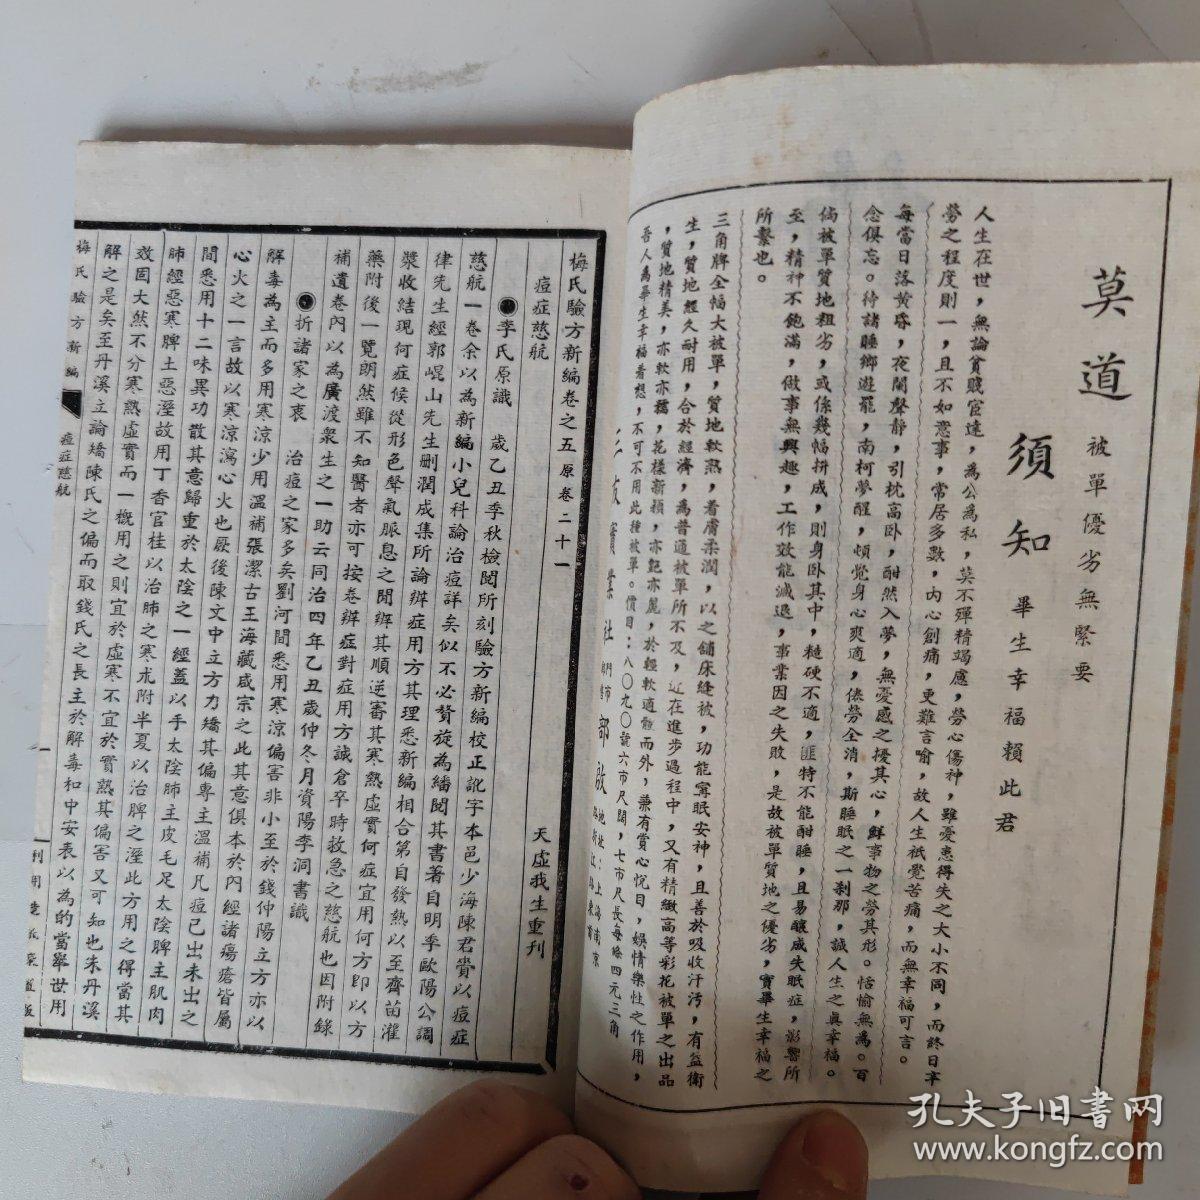 莫道
被單優劣無緊要
須知
畢生幸福賴此君
人生在世，無論貧賤宦達，為公為私，莫不殫精竭慮，勞心傷神，雖憂患得失之大小不同，而終日辛
勞之程度則一，且不如意事，常居多數，內心創痛，更難言喻，故人生祇覺苦痛，而無幸福可言。
每當日落黃昏，夜闌聲靜，引枕高卧，酣然入夢，無憂慼之擾其心，鮮事物之勞其形。恬愉無為。百
念俱忘。待諸睡鄉遊罷，南柯夢醒，頓覺身心爽適，倦勞全消，斯睡眠之一剎那，誠人生之真幸福。
倘被單質地粗劣，或係幾幅拼成，則身卧其中，糙硬不適，匪特不能酣睡，且易釀成失眠症，影響所
至，精神不飽滿，做事無興趣，工作效能減退，事業因之失敗，是故被單質地之優劣，實畢生幸福之
所繫也。
三角牌全幅大被單，質地軟熟，着膚柔潤，以之舖床縫被，功能甯眠安神，且善於吸收汗污，有益衛
生，質地經久耐用，合於經濟，為普通被單所不及，近在進步過程中，又有精緻高等彩花被單之出品
，質地精美，亦軟亦糯，花樣新穎，亦艷亦麗，於輕軟適骰而外，兼有賞心悅目，娛情樂性之作用，
吾人為畢生幸福着想，不可不用此種被單。價目：八〇九〇號六市尺闊，七市尺長每條四元三角
實業社
門市
部啟
地址：上海南京
梅氏驗方新編卷之五原卷二十一
天虛我生重刊
痘症慈航
李氏原識 歲乙丑季秋檢閱所刻驗方新編校正訛字本邑少海陳君賫以痘症
慈航一卷余以為新編小兒科論治痘詳矣似不必贅旋為繙閱其書著自明季歐陽公調
律先生經郭崐山先生刪潤成集所論辨症用方其理悉新編相合第自發熱以至齊苗灌
漿收結現何症候從形色聲氣脈息之間辨其順逆審其寒熱虛實何症宜用何方即以方
藥附後一覽朗然雖不知醫者亦可按卷辨症對症用方誠倉卒時救急之慈航也因附錄
補遺卷內以為廣渡衆生之一助云同治四年乙丑歲仲冬月資陽李洞書識
折諸家之衷 治痘之家多矣劉河間悉用寒涼偏害非小至於錢仲陽立方亦以
解毒為主而多用寒涼少用溫補張潔古王海藏咸宗之此其意俱本於內經諸痛瘡皆屬
心火之一言故以寒涼瀉心火也厥後陳文中立方力矯其偏專主溫補凡痘已出未出之
間悉用十二味異功散其意歸重於太陰之一經蓋以手太陰肺主皮毛足太陰脾主肌肉
肺經惡寒脾土惡溼故用丁香官桂以治肺之寒朮附半夏以治脾之溼此方用之得當其
效固大然不分寒熱虛實而一概用之則宜於虛寒不宜於實熱其偏害又可知也朱丹溪
解之是矣至丹溪立論矯陳氏之偏而取錢氏之長主於解毒和中安表以為的當舉世用
梅氏驗方新編
痘症慈航
一
孔夫子旧書网
www.kongfz.com